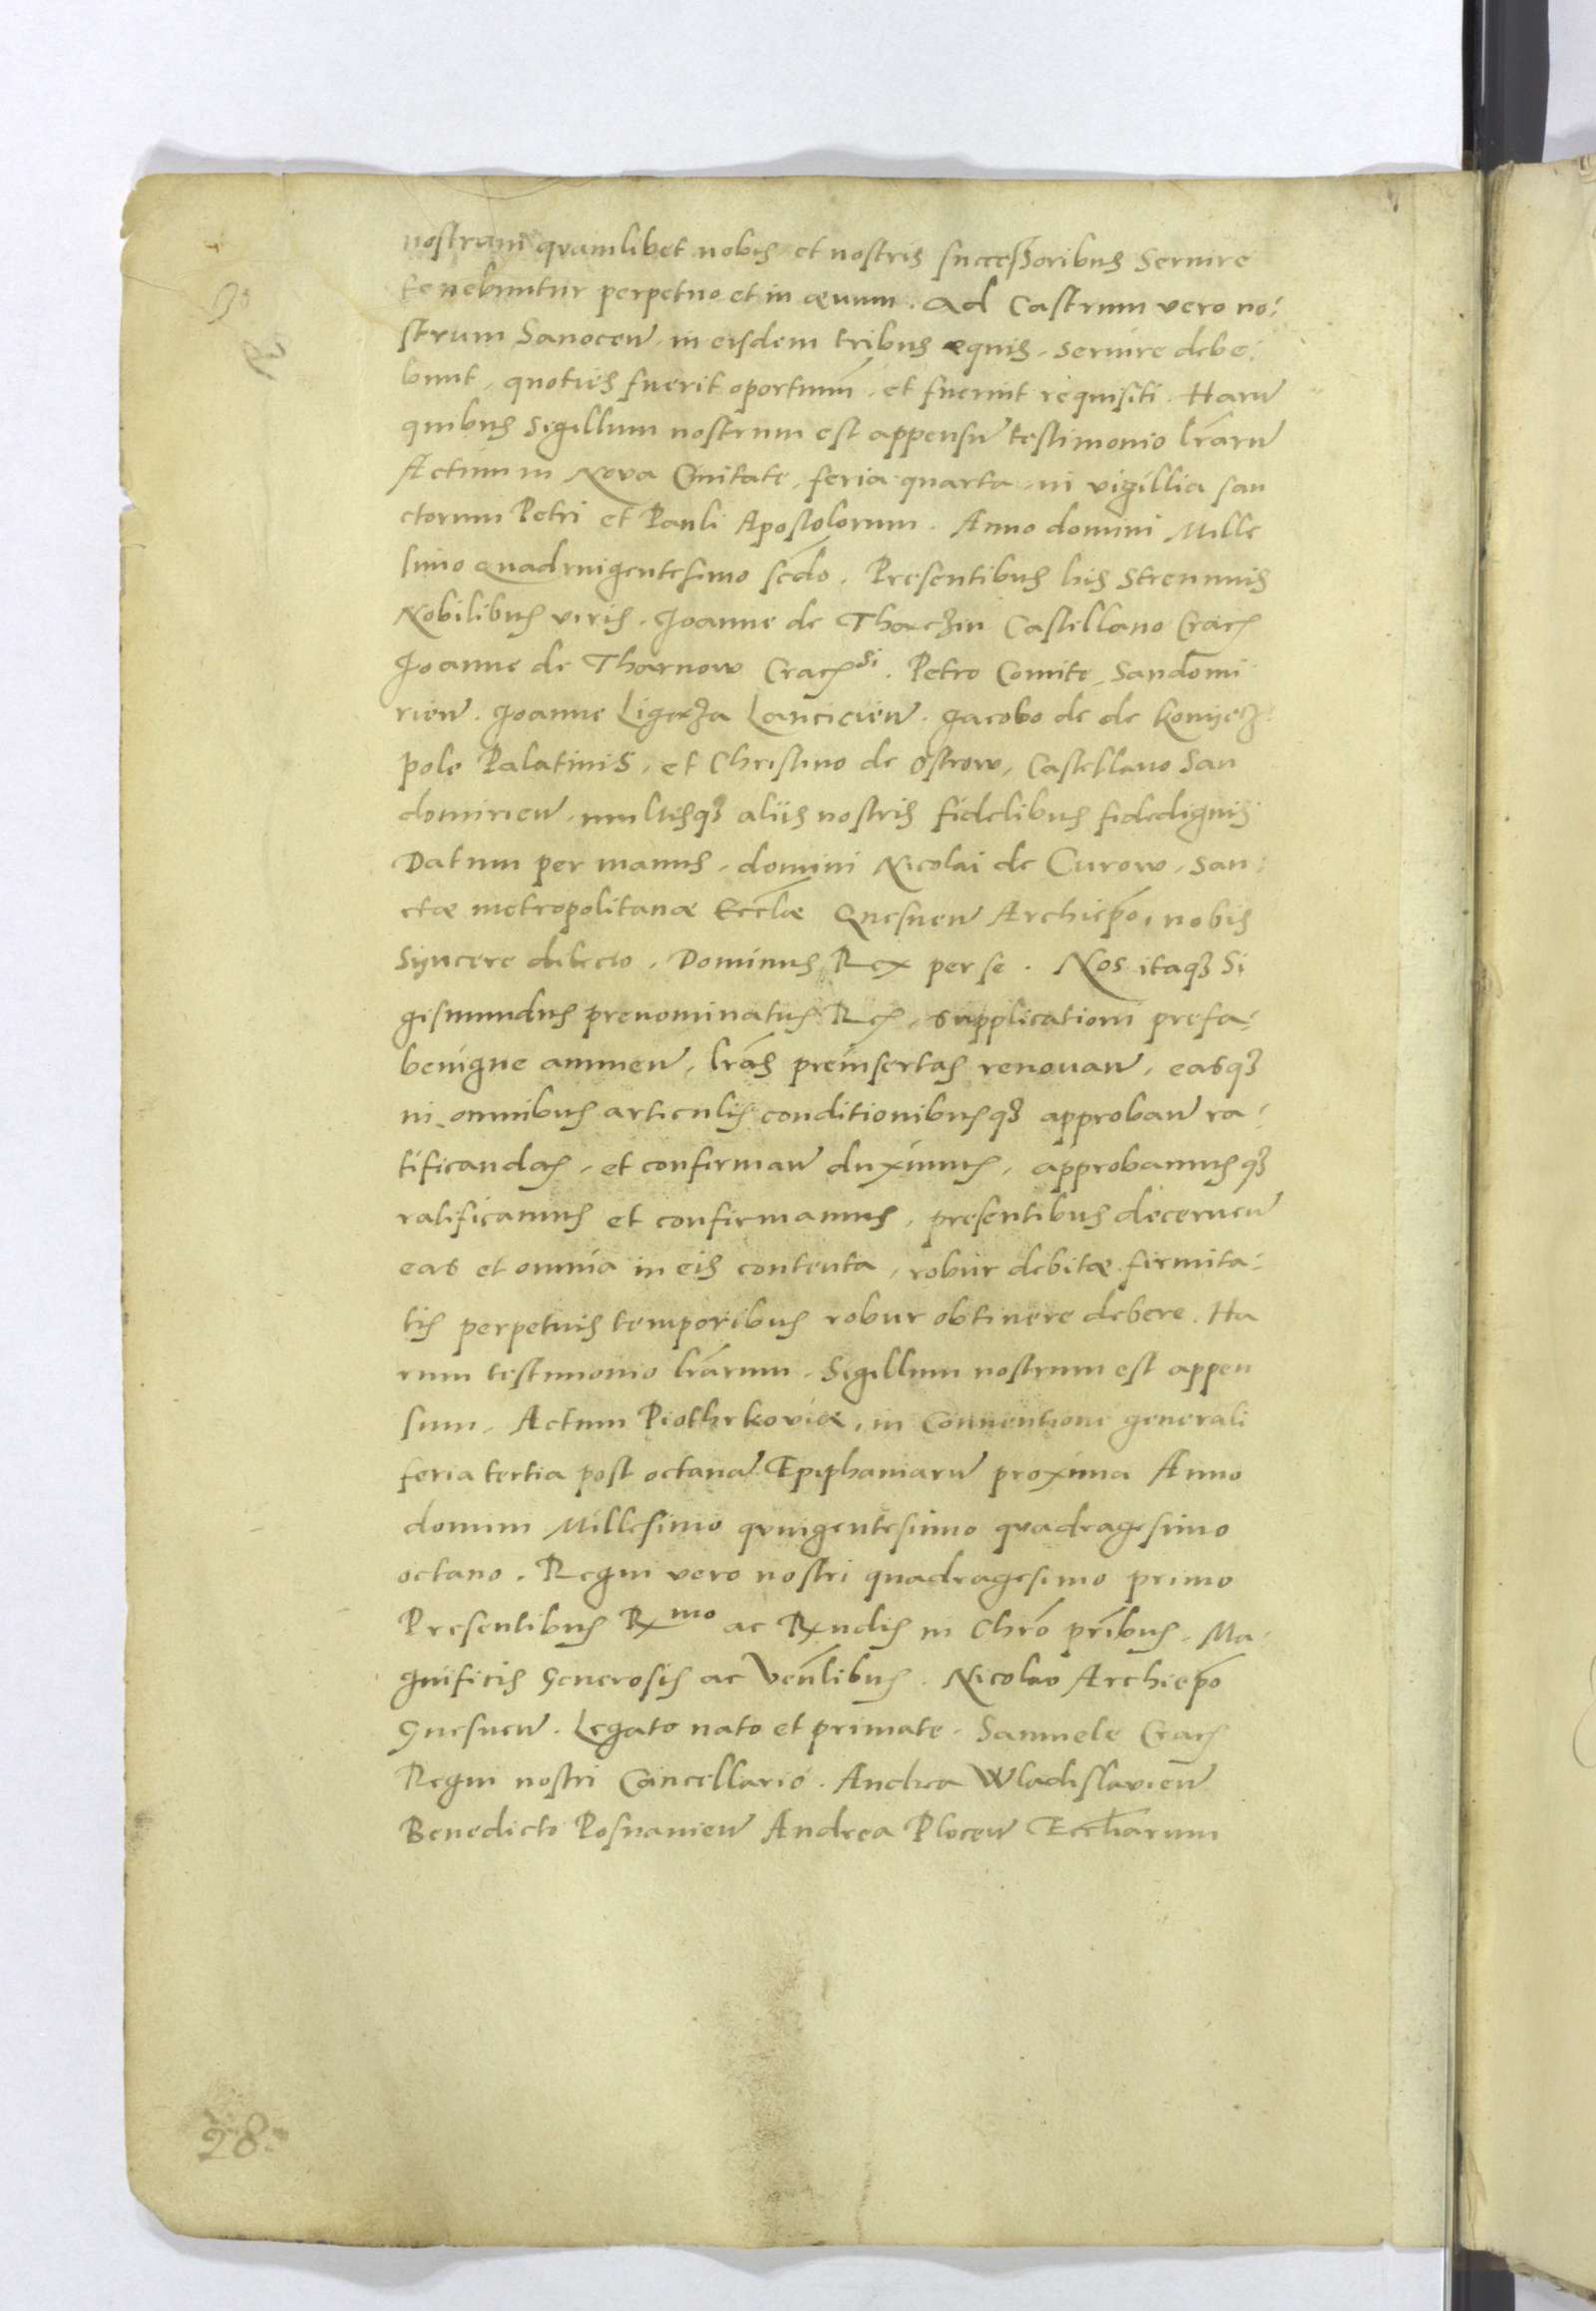 nostram quamlibet nobis et nostris successoribus Seruire
tenebuntur perpetuo et in aeuum. Ad Castrum vero no:
strum Sanocen̄. in eisdem tribus equis, seruire debe:
bunt, quoties fuerit oportunū, et fuerint requisiti. Harū
quibus Sigillum nostrum est appensū testimonio lr̄arū
Actum in Nova Ciuitate, feria quarta, in vigillia san
ctorum Petri et Pauli Apostolorum. Anno domini Mille
simo quadringentesimo sēdo. Presentibus his Strennuis
Nobilibus viris. Joanne de Thaczin Castellano Crac̄
Joanne de Tharnow Crac̄si. Petro Comite, Sandomi
rien̄. Joanne Ligęza Lancicien̄. Jacobo de de Konyecz:
pole Palatinis, et Christino de Ostrow, Castellano San
domirien̄, multisqꝫ aliis nostris fidelibus fidedignis
Datum per manus, domini Nicolai de Curow, san:
ctae metropolitanae Eccl̄ae Gnesnen̄ Archiep̄o, nobis
Syncere dilecto. Dominus Rex per se. Nos itaqꝫ Si
gismundus prenominatus Rex, supplicationi prefa:
benigne annuen̄, lr̄as preinsertas renouan̄, easqꝫ
in omnibus articulis conditionibusqꝫ approban̄ ra:
tificandas, et confirman̄ duximus, approbamusqꝫ
ratificamus et confirmamus, presentibus decernen̄
eas et omnia in eis contenta, robur debitae firmita:
tis perpetuis temporibus robur obtinere debere. Ha
rum testimonio lr̄arum. Sigillum nostrum est appen
sum. Actum Piothrkoviae, in Conuentione generali
feria tertia post octauā Epiphaniarū proxima Anno
domini Millesimo quingentesimo quadragesimo
octauo. Regni vero nostri quadragesimo primo
Presentibus Rmo ac Rndis in Chr̄o pr̄ibus. Ma:
gnificis Generosis ac Ven̄libus. Nicolao Archiep̄o
Gnesnen̄. Legato nato et primate. Samuele Crac̄
Regni nostri Cancellario. Andrea Wladislavien̄
Benedicto Posnanien̄ Andrea Plocen̄ Eccl̄iarum
28